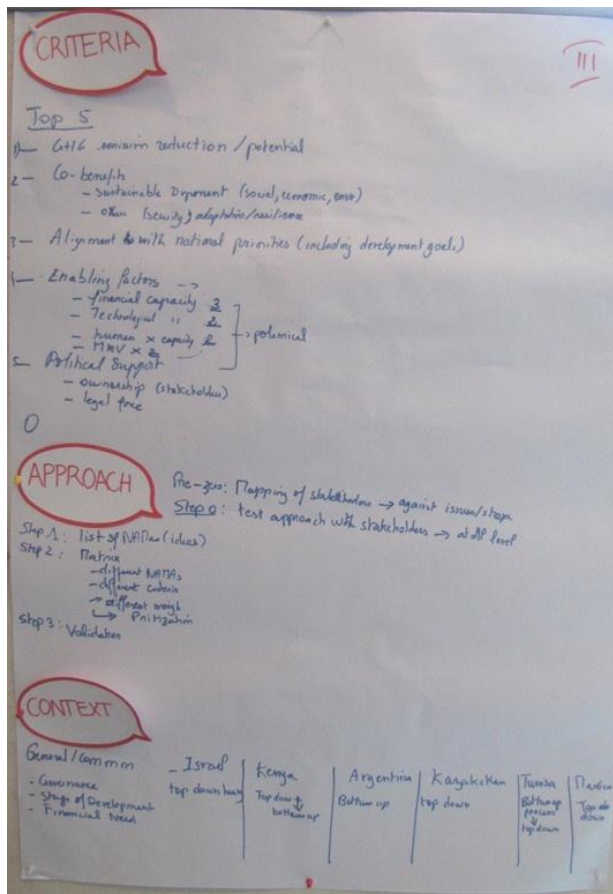 CRITERIA
III
Top 5
1)— GHG emission reduction / potential
2 — Co-benefits
— sustainable Dvpment (social, economic, envo)
— other (security) adaptation/resilience
3 — Alignment to with national priorities (including development goals)
— Enabling factors →
— financial capacity 3
— Technological " 2
— human x capacity 2
— MRV x 2
→ polemical
5 — Political Support
— ownership (stakeholders)
— legal force
O
APPROACH
Pre-zero: Mapping of stakeholders → against issues/steps
Step 0: test approach with stakeholders → at all level
Step 1: list of NAMAs (ideas)
Step 2: Matrix
— different NAMAs
— different criteria
→ different weigh
↳ Pritization
Step 3: Validation
CONTEXT
General/common
- Governance
- Stage of Development
- Financial Need
- Israel
top down
Kenya
Top down +
bottom up
Argentina
Bottom up
Kazakstan
top down
Tunisia
Bottom up
process
↓
top down
Top
down